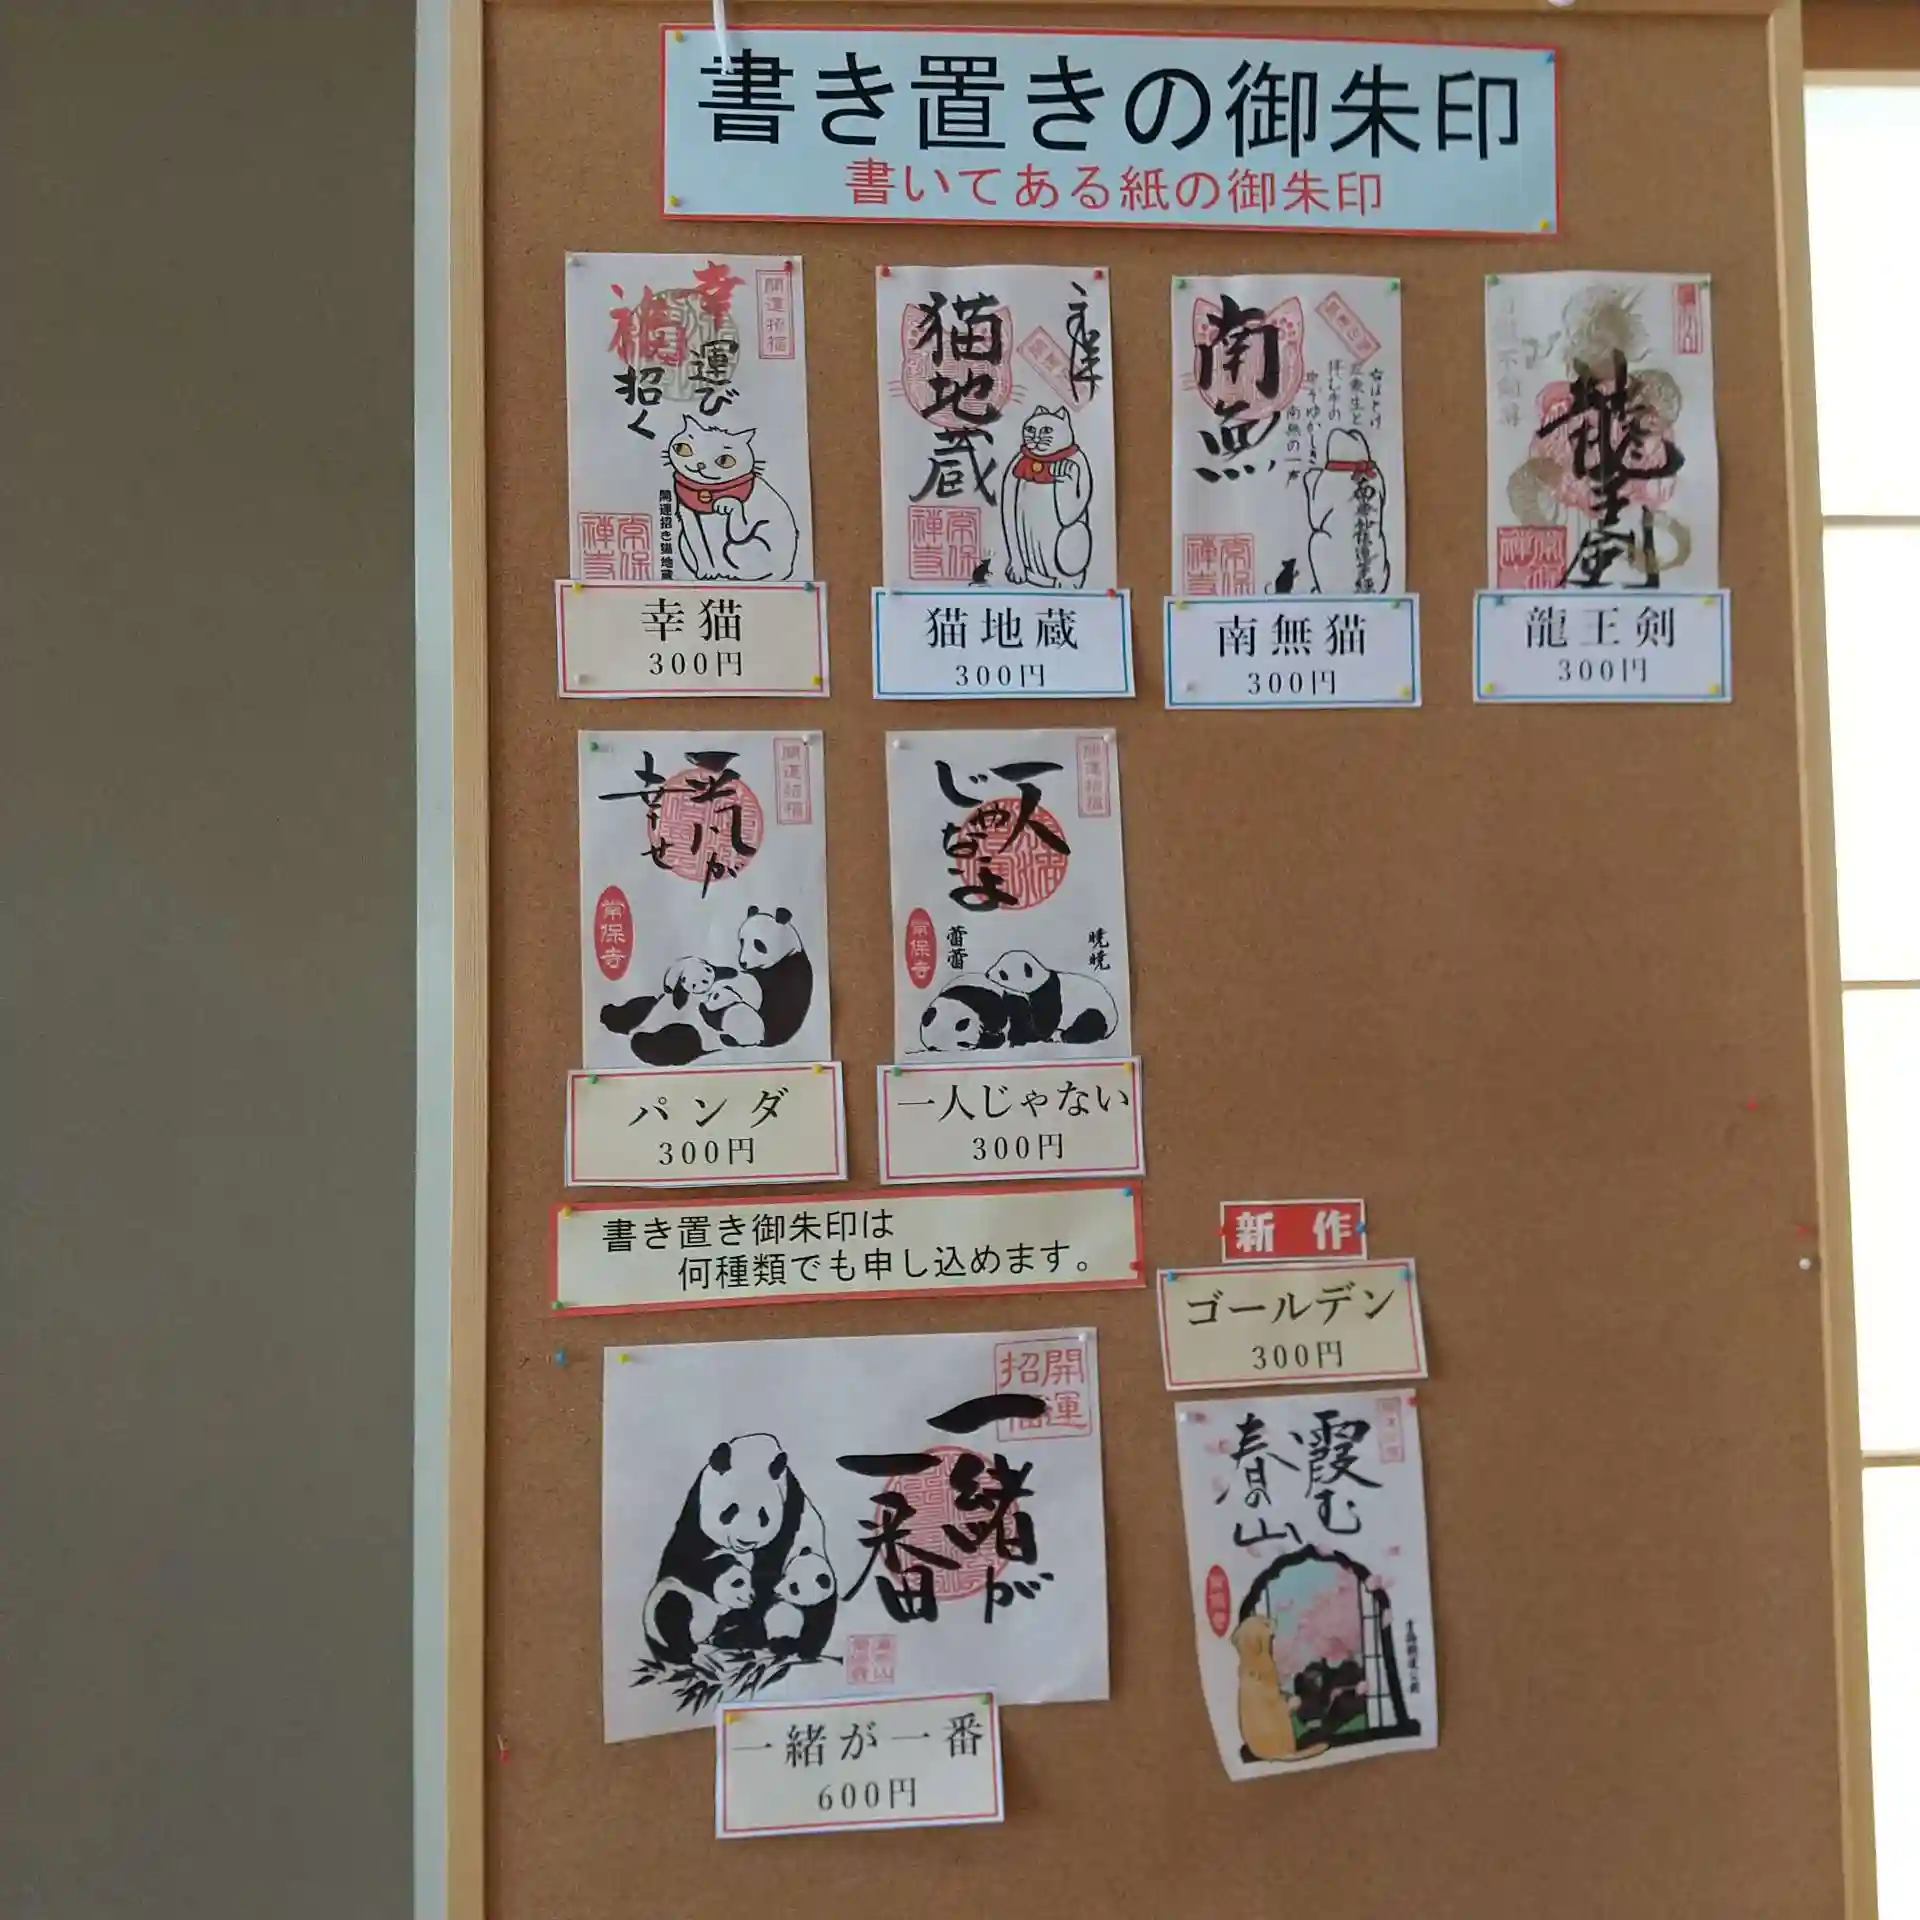 書き置きの御朱印
書いてある紙の御朱印
幸
福
運び
招く
開運招福
開運招き猫地蔵
常保
禅寺
幸猫
300円
猫地蔵
常保
禅寺
猫地蔵
300円
南無
南無の一声
常保
禅寺
南無猫
300円
龍王剣
龍王剣
300円
開運招福
平凡が
幸せ
常保寺
パンダ
300円
開運招福
一人
じゃないよ
常保寺
蕾蕾
暁暁
一人じゃない
300円
書き置き御朱印は
何種類でも申し込めます。
新作
ゴールデン
300円
開運
招福
一緒が
一番
一緒が一番
600円
霞む
春の山